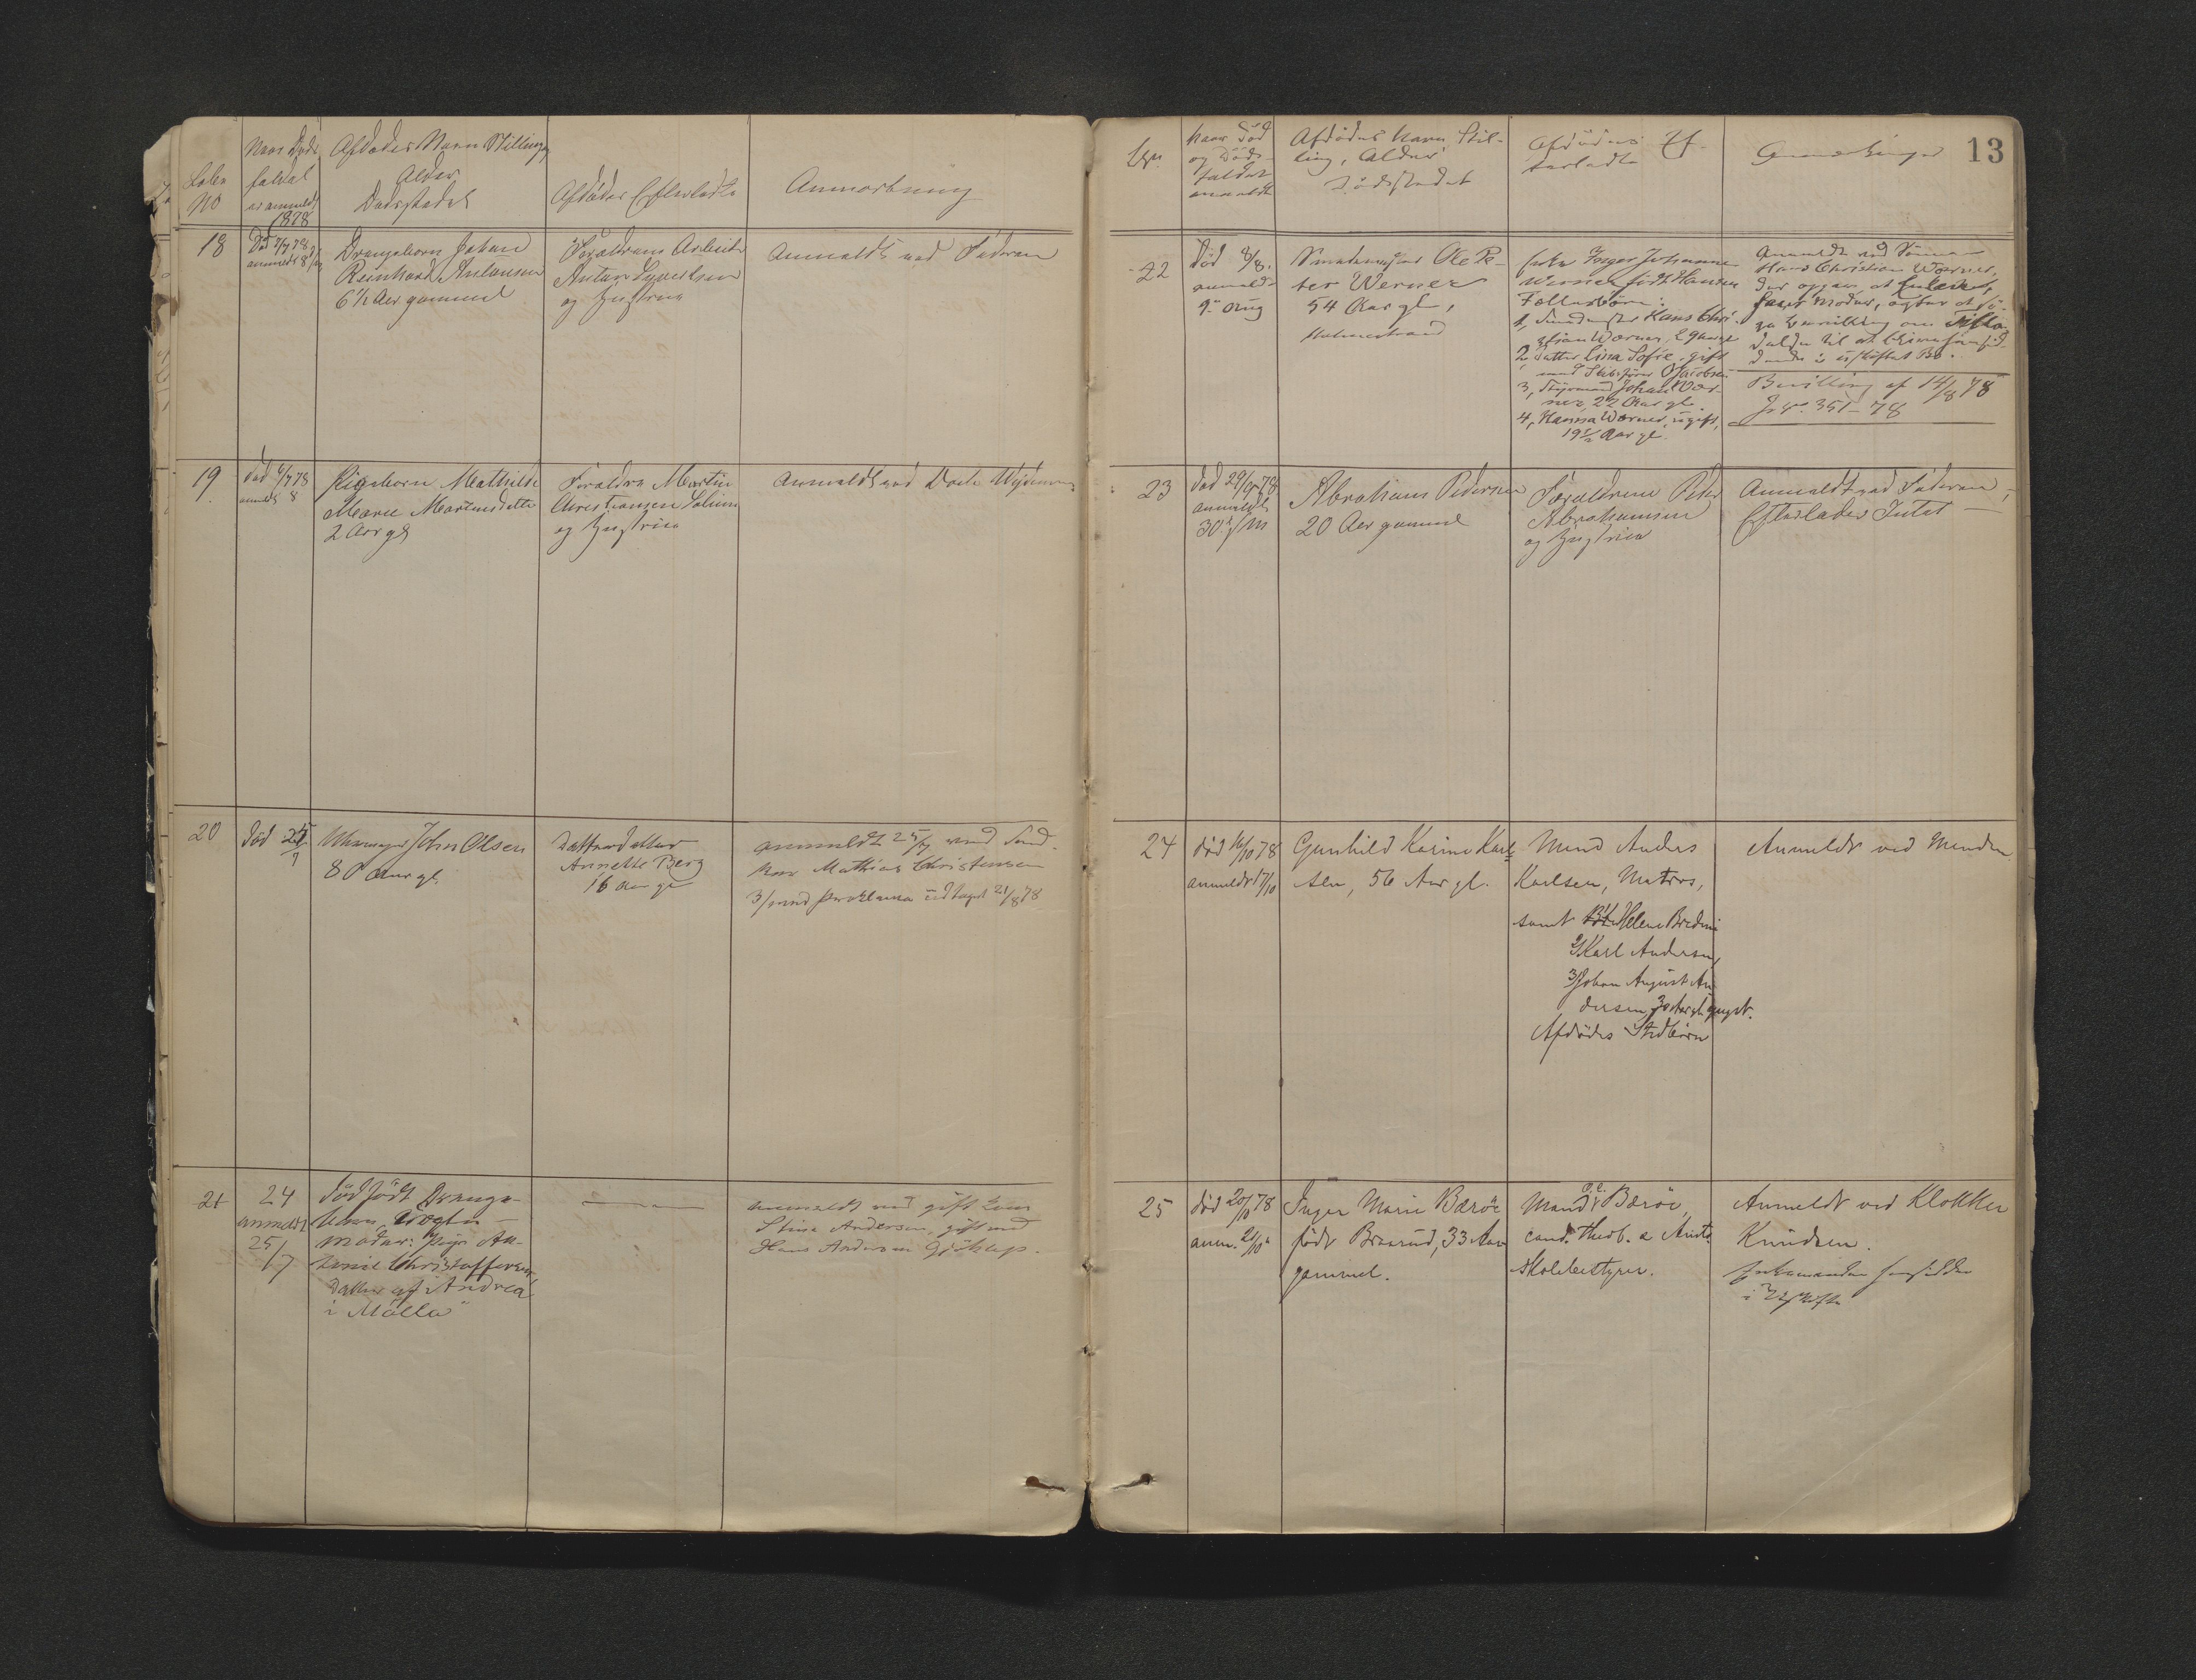 Løben
No
Naar Døds
faldet
er anmeldt
1878
Afdødes Navn Stilling
Alder
Dødsstedet
Afdødes Efterladte
Anmærkning
18
Død 7/7 78
anmeldt 8/7
Drengebarn Johan
Reinhard Antonsen
6 1/2 Aar gammel
Forældrene Arbeider
Anton Syvertsen
og Hustru
Anmeldt ved Faderen
19
Død 6/7 78
anmeldt 8
Pigebarn Mathilde
Marie Martinsdatter
2 Aar gl
Forældre Martin
Christiansen Solum
og Hustru
Anmeldt ved Dorte
20
Død
7
John Olsen
80 Aar gl.
Datterdatter
Annette Berg
16 Aar gl
anmeldt 25/7 ved Sned-
ker Mathias Christensen
3/mnd proklama udtaget 21/8 78
21
24
anmeldt
25/7
Dødfødt Drenge-
barn,
Moder: Pige An-
Christoffersen,
Datter af "Andrea
i Mölla"
anmeldt ved gift Kone
Stina Andersen, gift med
Hans Andersen
13
No.
Naar Død
og Døds-
faldet
anmeldt
Afdødes Navn, Stil-
ling, Alder
Dødsstedet
Afdødes Ef-
terladte
Anmærkninger
22
Død 8/8.
anmeldt
9. Aug
Ole Pe-
ter Werner
54 Aar gl,
Holmestrand
Enke Inger Johanne
Werner født Hansen
Fællesbørn:
1, Hans Chri-
stian Wærner,
2, Datter Lina Sofie, gift
med Skibsfører O Jacobsen
3, Styrmand Johan Wær-
ner 22 Aar gl.
4, Hanna Wærner, ugift,
19 1/2 Aar gl.
Anmeldt ved Sønnen
Hans Christian Wærner,
der opgav, at Enken,
hans Moder, agter at sø-
ge Bevilling om Tilla-
delse til at blive hensid-
dende i uskiftet Bo.
Bevilling af 14/8 78
Jr No. 351-78
23
Død 29/9 78
anmeldt
30. s/M
Abraham Pedersen
20 Aar gammel
Forældrene Peder
Abrahamsen
og Hustru
Anmeldt ved Faderen,
Efterlader Intet
24
død 16/10 78
anmeldt 17/10
Gunhild Karine Karl-
sen, 56 Aar gl.
Mand Anders
Karlsen, Matros,
samt 1/ Helene Bredine
2/ Karl Andersen,
3/ Johan August An-
dersen yngst.
Afdødes Stedbørn
Anmeldt ved Manden
25
død 20/10 78
anm. 21/10
Inger Marie Bærøe
født Braarud, 33 Aar
gammel.
Mand: Bærøe,
cand. theol. &
Skolebestyrer.
Anmeldt ved Klokker
Knudsen.
Enkemanden hensidder
i Uskifte